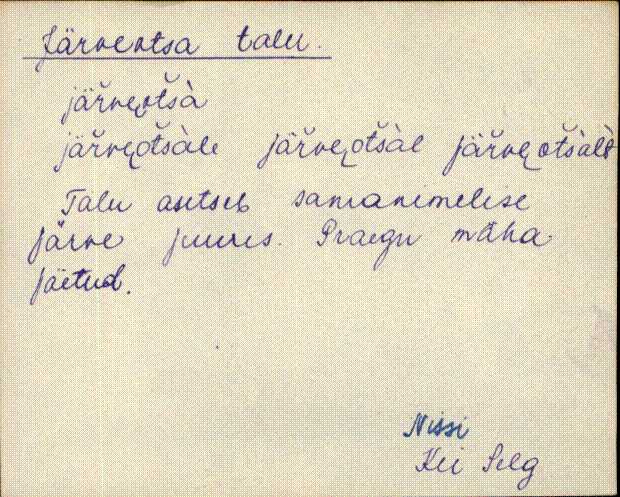 Järveotsa talu.
järve‿otsà
järve‿otsàle järve‿otsàl järve‿otsàlt
Talu asetseb samanimelise
järve juures. Praegu maha
jäetud.
Nissi
Kei Selg